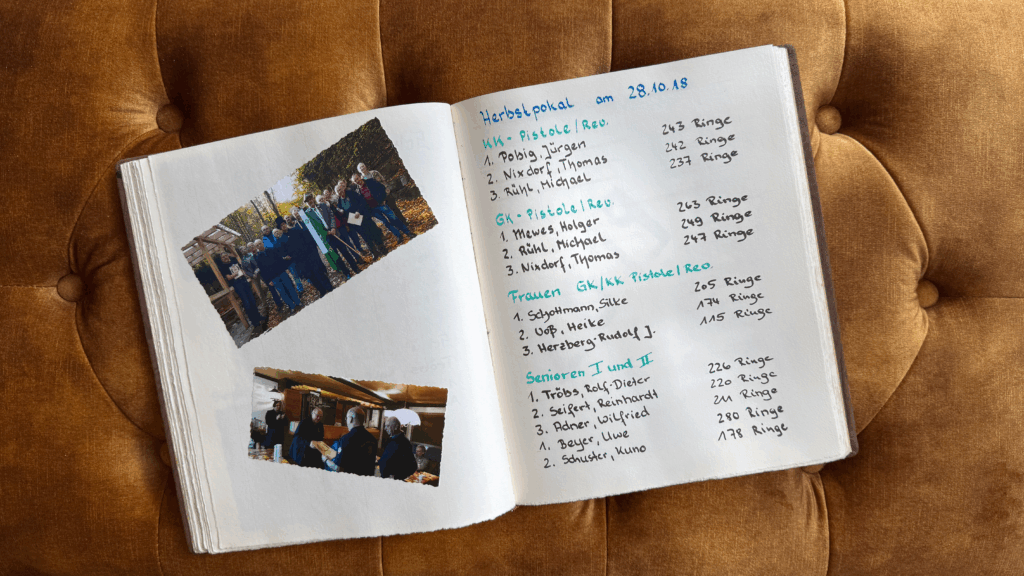 Herbstpokal am 28.10.18
KK-Pistole/Rev.
1. Polbig, Jürgen 243 Ringe
2. Nixdorf, Thomas 242 Ringe
3. Rühl, Michael 237 Ringe
GK-Pistole/Rev.
1. Mewes, Holger 263 Ringe
2. Rühl, Michael 249 Ringe
3. Nixdorf, Thomas 247 Ringe
Frauen GK/KK Pistole/Rev.
1. Schottmann, Silke 205 Ringe
2. Voß, Heike 174 Ringe
3. Herzberg-Rudolf J. 115 Ringe
Senioren I und II
1. Tröbs, Rolf-Dieter 226 Ringe
2. Seifert, Reinhardt 220 Ringe
3. Adner, Wilfried 211 Ringe
1. Beyer, Uwe 280 Ringe
2. Schuster, Kuno 178 Ringe